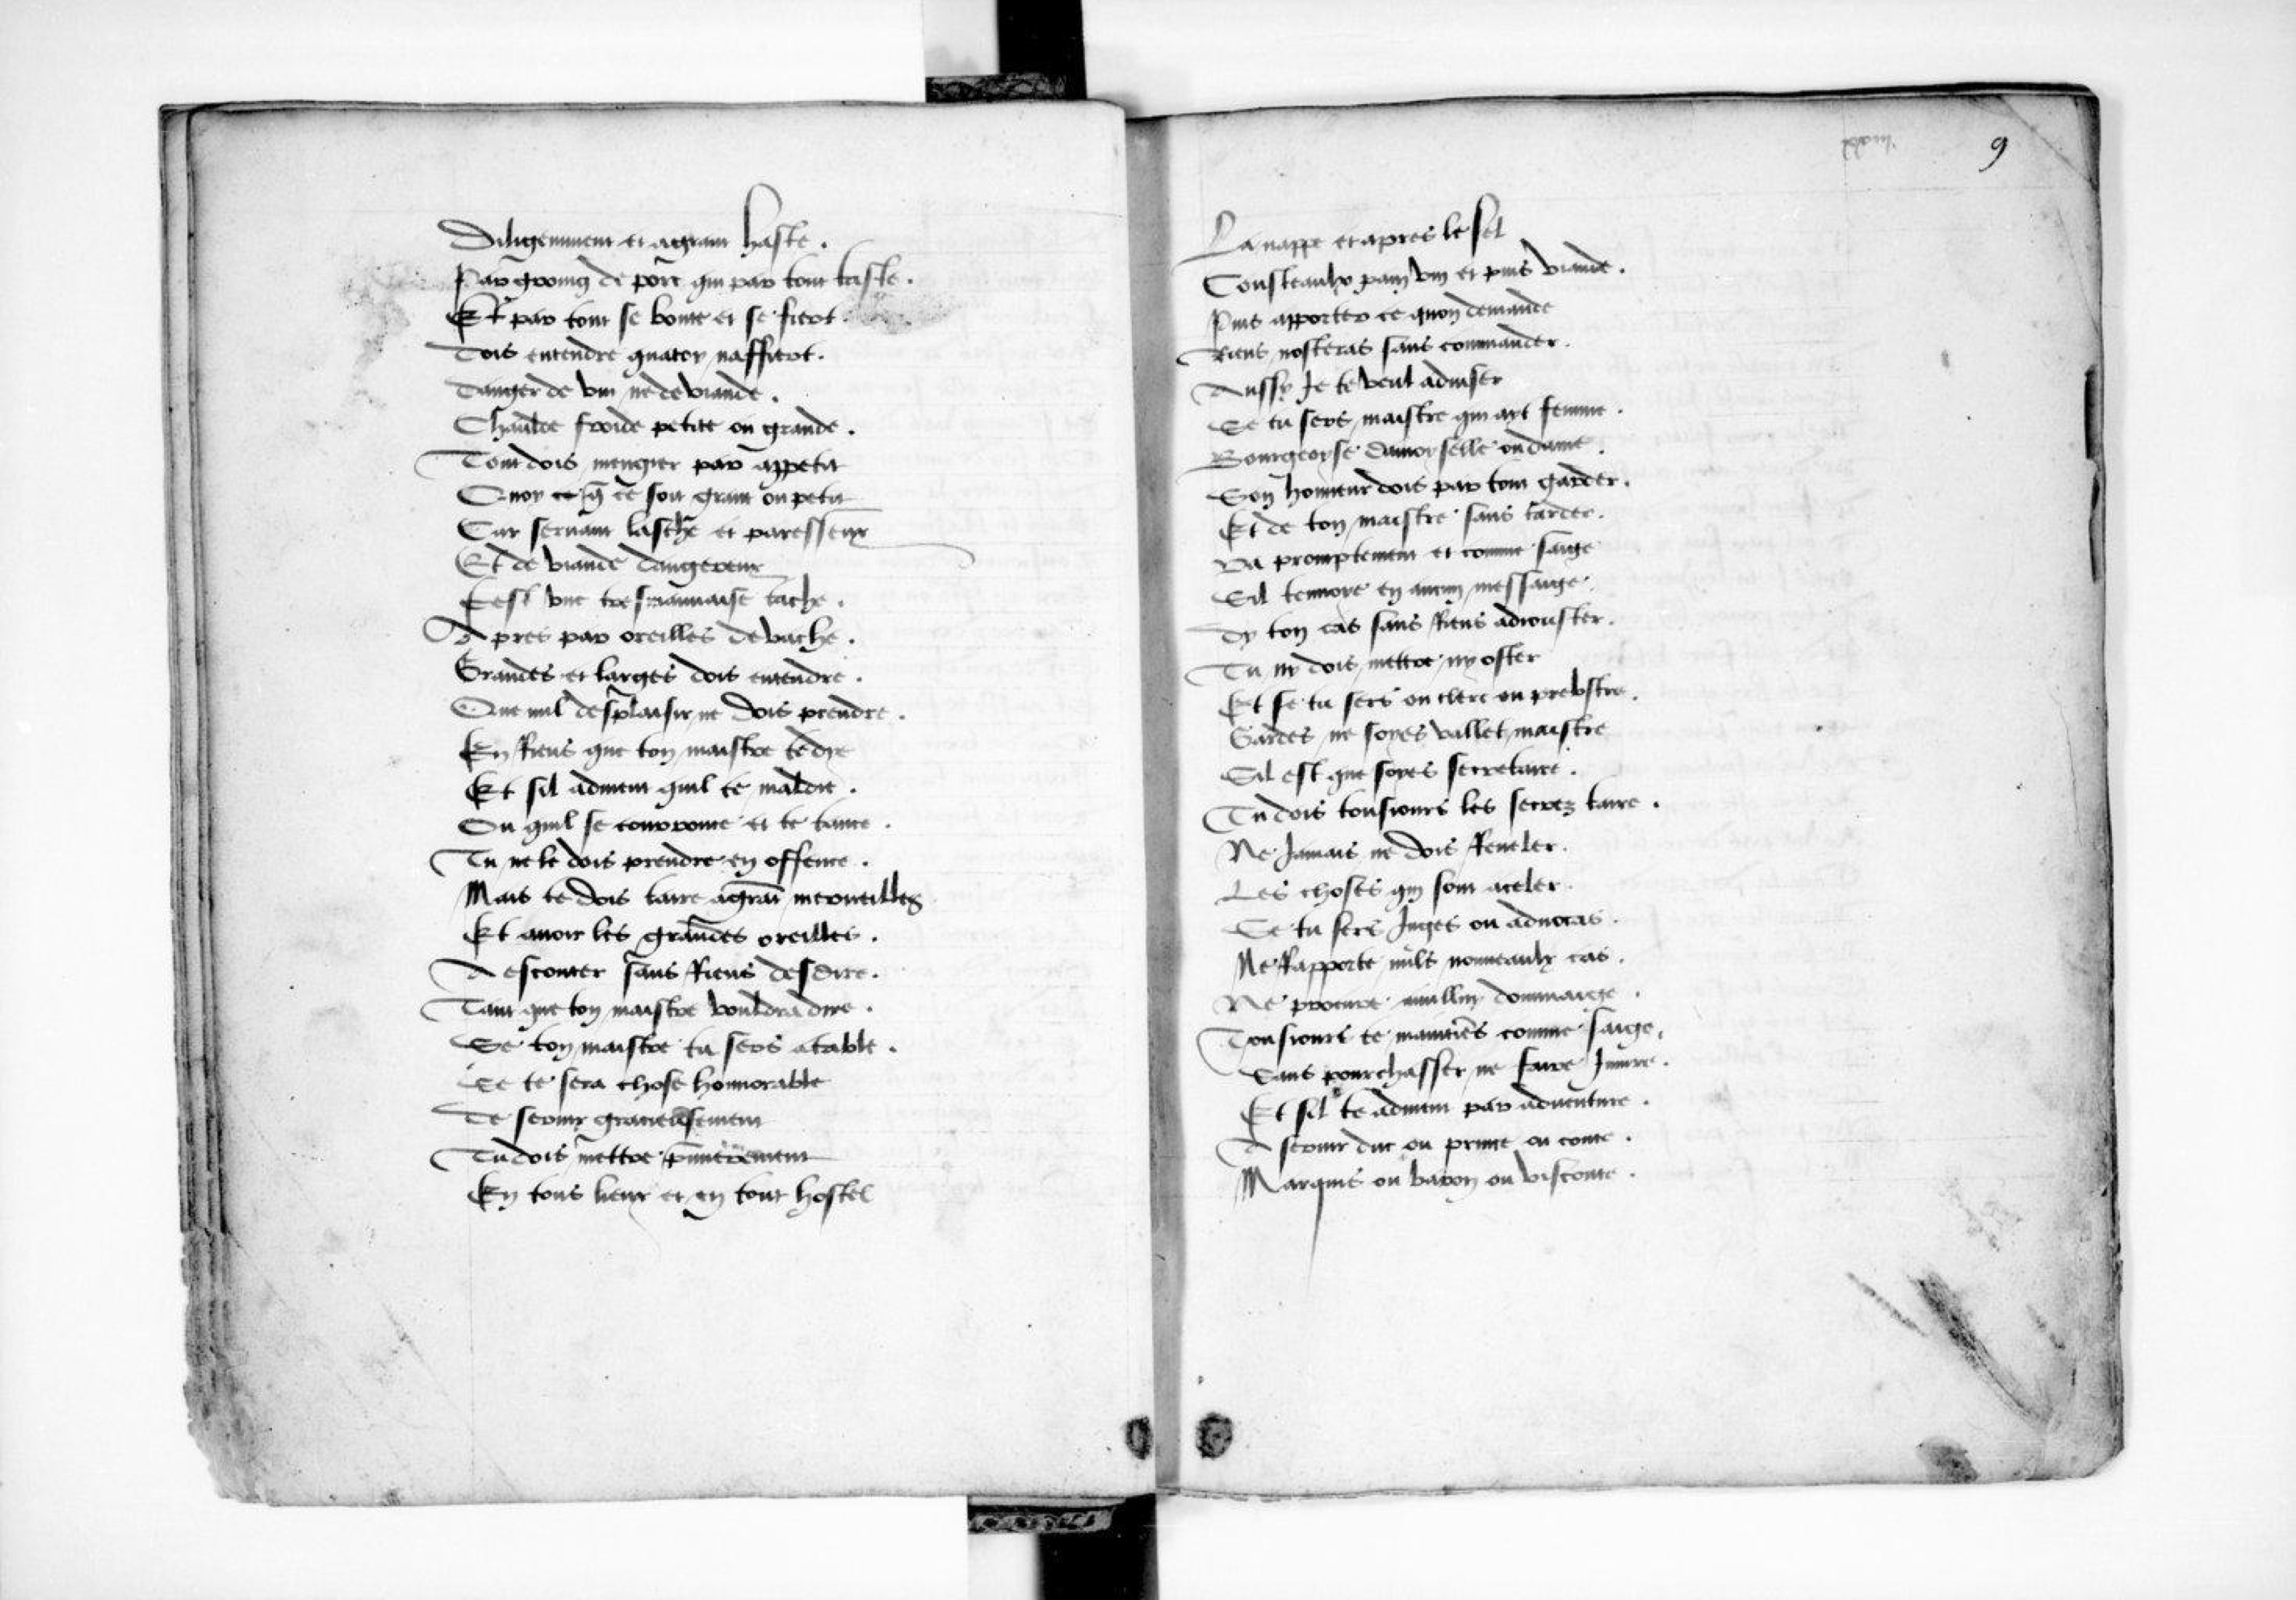 Diligemment et a grant haste.
Par groing de porc qui par tout taste.
Et par tout se boute et se fiert.
Dois entendre qua toy naffiert.
Danger de vin ne de viande.
Chaulde froide petite ou grande.
Tout dois mengier par appetit
Quoy q̃ ce soit grant ou petit
Car servant lasche et paresseux
Et de viande dangereux
Cest une tresmauuaise tache.
Apres par oreilles de vache.
Grandes et larges dois entendre.
Que nul desplaisir ne dois prendre.
En Riens que ton maistre te dye
Et sil aduient quil te maldie.
Ou quil se courrouce et te tance.
Tu ne le dois prendre en offence.
Mais te dois taire a grãt merueilles
Et auoir les grandes oreilles.
A escouter sans Riens desdire.
Tant que ton maistre vouldra dire.
Se ton maistre tu sers a table.
Ce te sera chose honnorable
De seruir gracieusement
Tu dois mettre p̃mierement
En tous lieux et en tout hostel
9
La nappe et apres le sel
Cousteaulx pain vin et puis viande.
Puis apporter ce quon demande
Riens nosteras sans commander.
Aussy Je te veul aduiser
Se tu sers maistre qui ayt femme.
Bourgeoyse damoyselle ou dame.
Son honneur dois par tout garder.
Et de ton maistre sans tarder.
Va promptement et comme saige
Sil tenuoye en aucun messaige.
Dy ton cas sans Riens adiouster.
Tu ny dois mettre ny oster
Et se tu sers ou clerc ou prebstre.
Gardes ne soyes vallet maistre
Sil est que soyes secretaire.
Tu dois tousiours les secrez taire.
Ne Jamais ne dois Reueler.
Les choses qui sont a celer.
Se tu sers Juges ou aduocas.
Ne Rapporte nulz nouueaulx cas.
Ne procure nulluy dommaige.
Tousiours te maintiens comme saige.
Sans pourchasser ne faire Iniure.
Et sil te aduient par aduenture.
A seruir duc ou prince ou conte.
Marquis ou baron ou visconte.